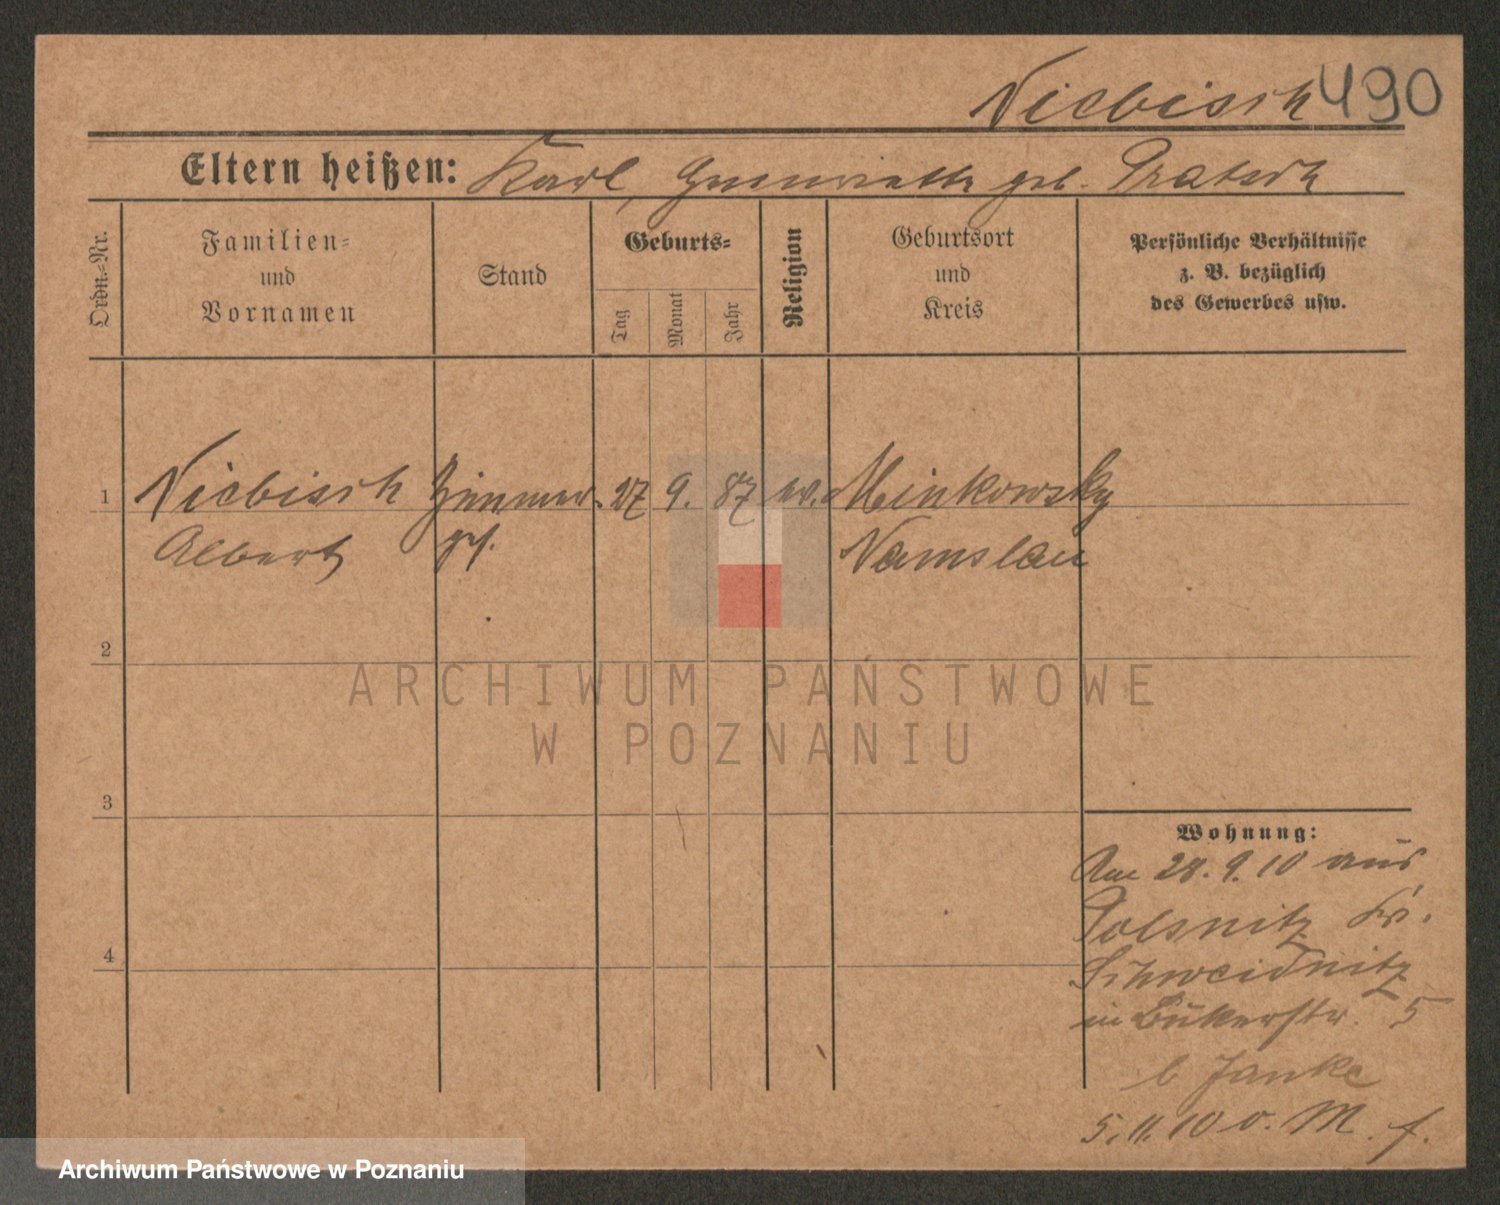 Niebisch 490
Eltern heißen: Karl, Henriette geb. Pratsch
Ordn.=Nr.
Familien=
und
Vornamen
Stand
Geburts=
Tag
Monat
Jahr
Religion
Geburtsort
und
Kreis
Persönliche Verhältnisse
z. B. bezüglich
des Gewerbes usw.
1 Niebisch Zimmer. 17 9. 87 ev. Minkowsky
Albert ges. Namslau
2
3
4
ARCHIWUM PAŃSTWOWE
W POZNANIU
Wohnung:
Am 28. 9. 10 aus
Polsnitz Kr.
Schweidnitz
in Bäkerstr. 5
b Janke
5. 11. 10 v. M. f.
Archiwum Państwowe w Poznaniu